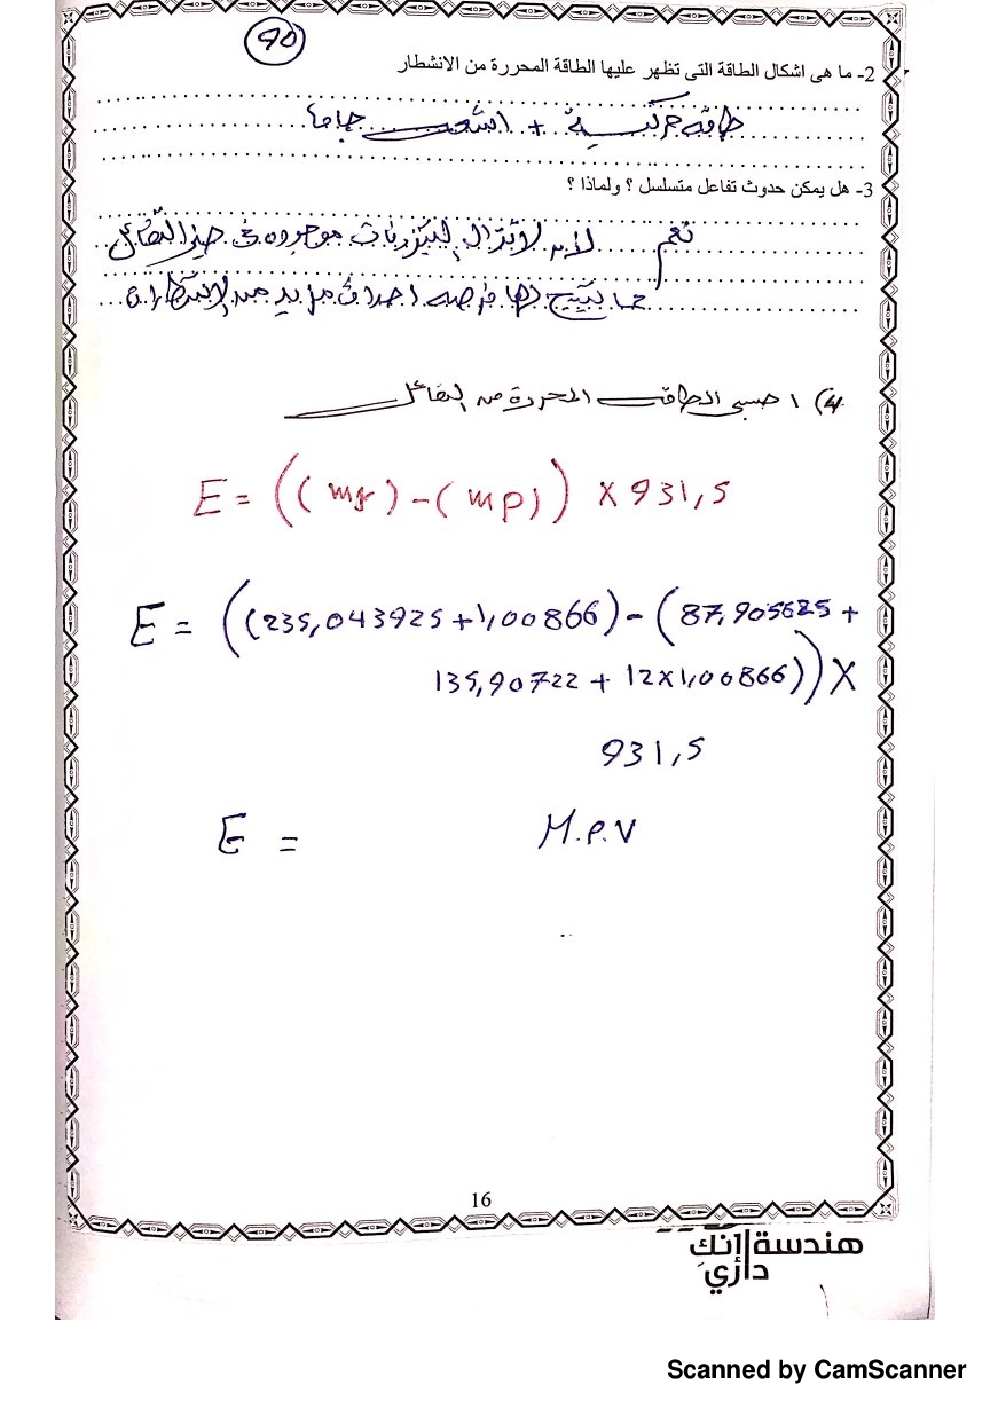 90
2- ما هى اشكال الطاقة التى تظهر عليها الطاقة المحررة من الانشطار
طاقه حركية + اشعه جاما
3- هل يمكن حدوث تفاعل متسلسل ؟ ولماذا ؟
نعم لانه لا تزال النيترونات موجوده فى حيز التفاعل
مما يتيح لها فرصه احداث مزيد من الانشطارات
4) احسبى الطاقه المحررة من التفاعل
E = ((mr) - (mp)) × 931,5
E = ((235,043925 + 1,00866) - (87,905625 +
135,90722 + 12×1,00866)) ×
931,5
E = M.e.V
16
هندسة إنك
دائري
Scanned by CamScanner